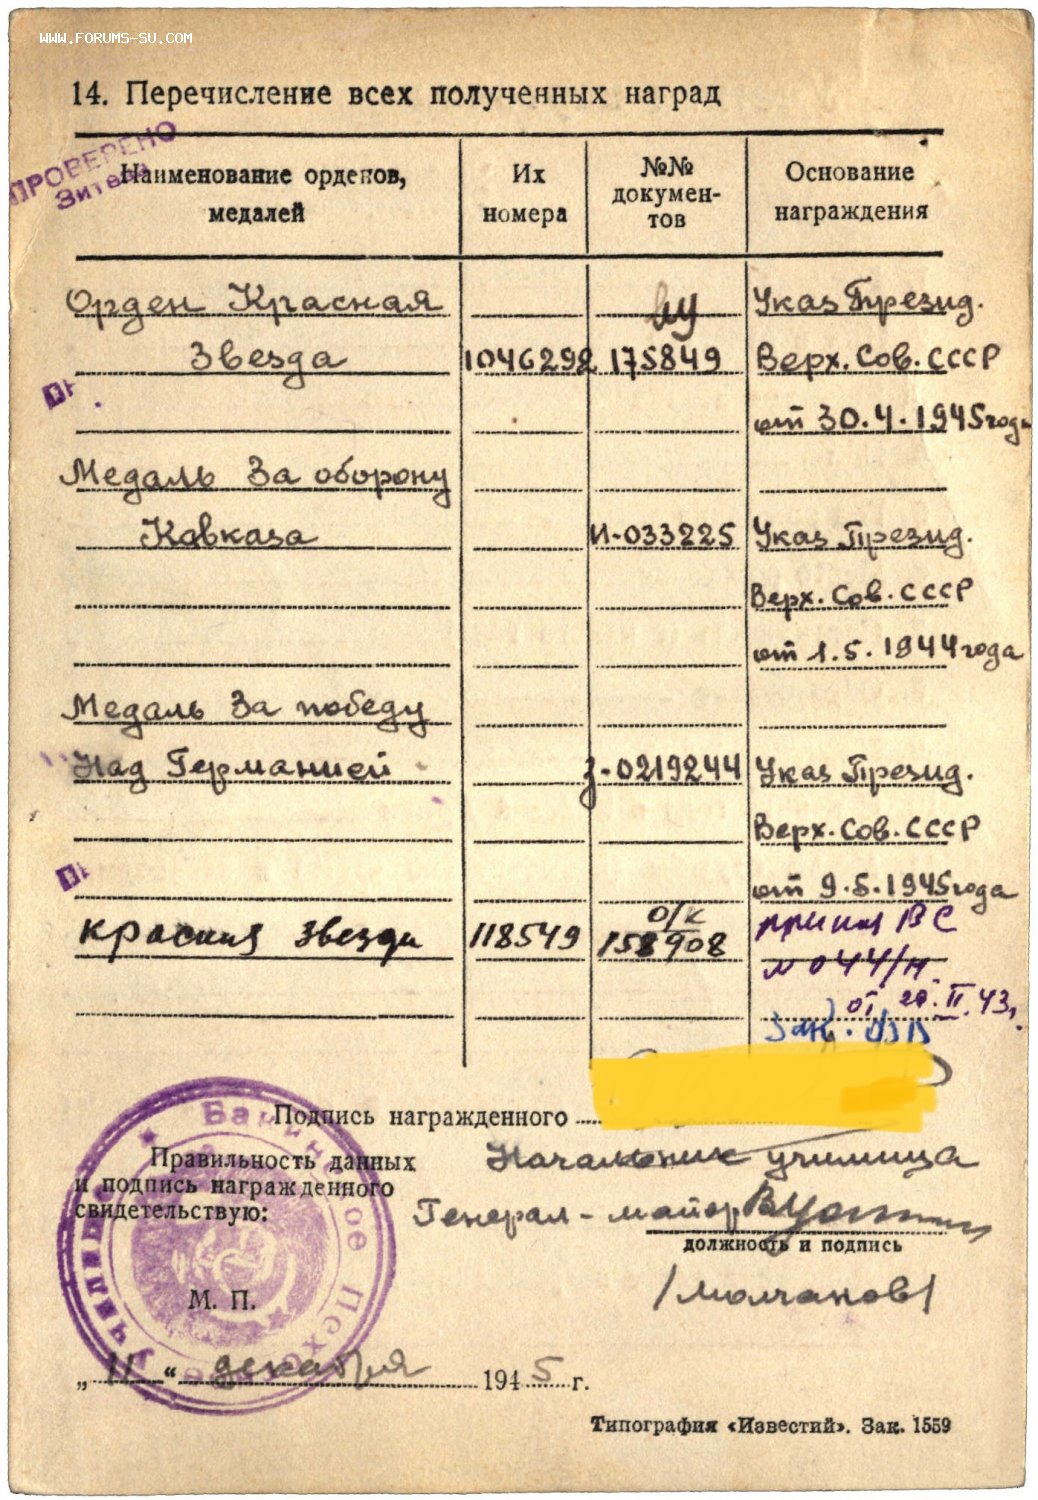 WWW.FORUMS-SU.COM
14. Перечисление всех полученных наград
ПРОВЕРЕНО
Наименование орденов, медалей
Их номера
№№ документов
Основание награждения
Орден Красная Указ Презид.
Звезда 1046292 175849 Верх. Сов. СССР
от 30.4.1945 года
Медаль За оборону
Кавказа И-033225 Указ Презид.
Верх. Сов. СССР
от 1.5.1944 года
Медаль За победу
Над Германией З-0219244 Указ Презид.
Верх. Сов. СССР
от 9.5.1945 года
о/к
Красная звезда 118549 158908 ВС
№ 044/н
от 20.II.43г.
Подпись награжденного
Правильность данных Начальник училища
и подпись награжденного
свидетельствую: Генерал-майор
должность и подпись
М. П. /Молчанов/
„11“ декабря 1945 г.
Типография «Известий». Зак. 1559